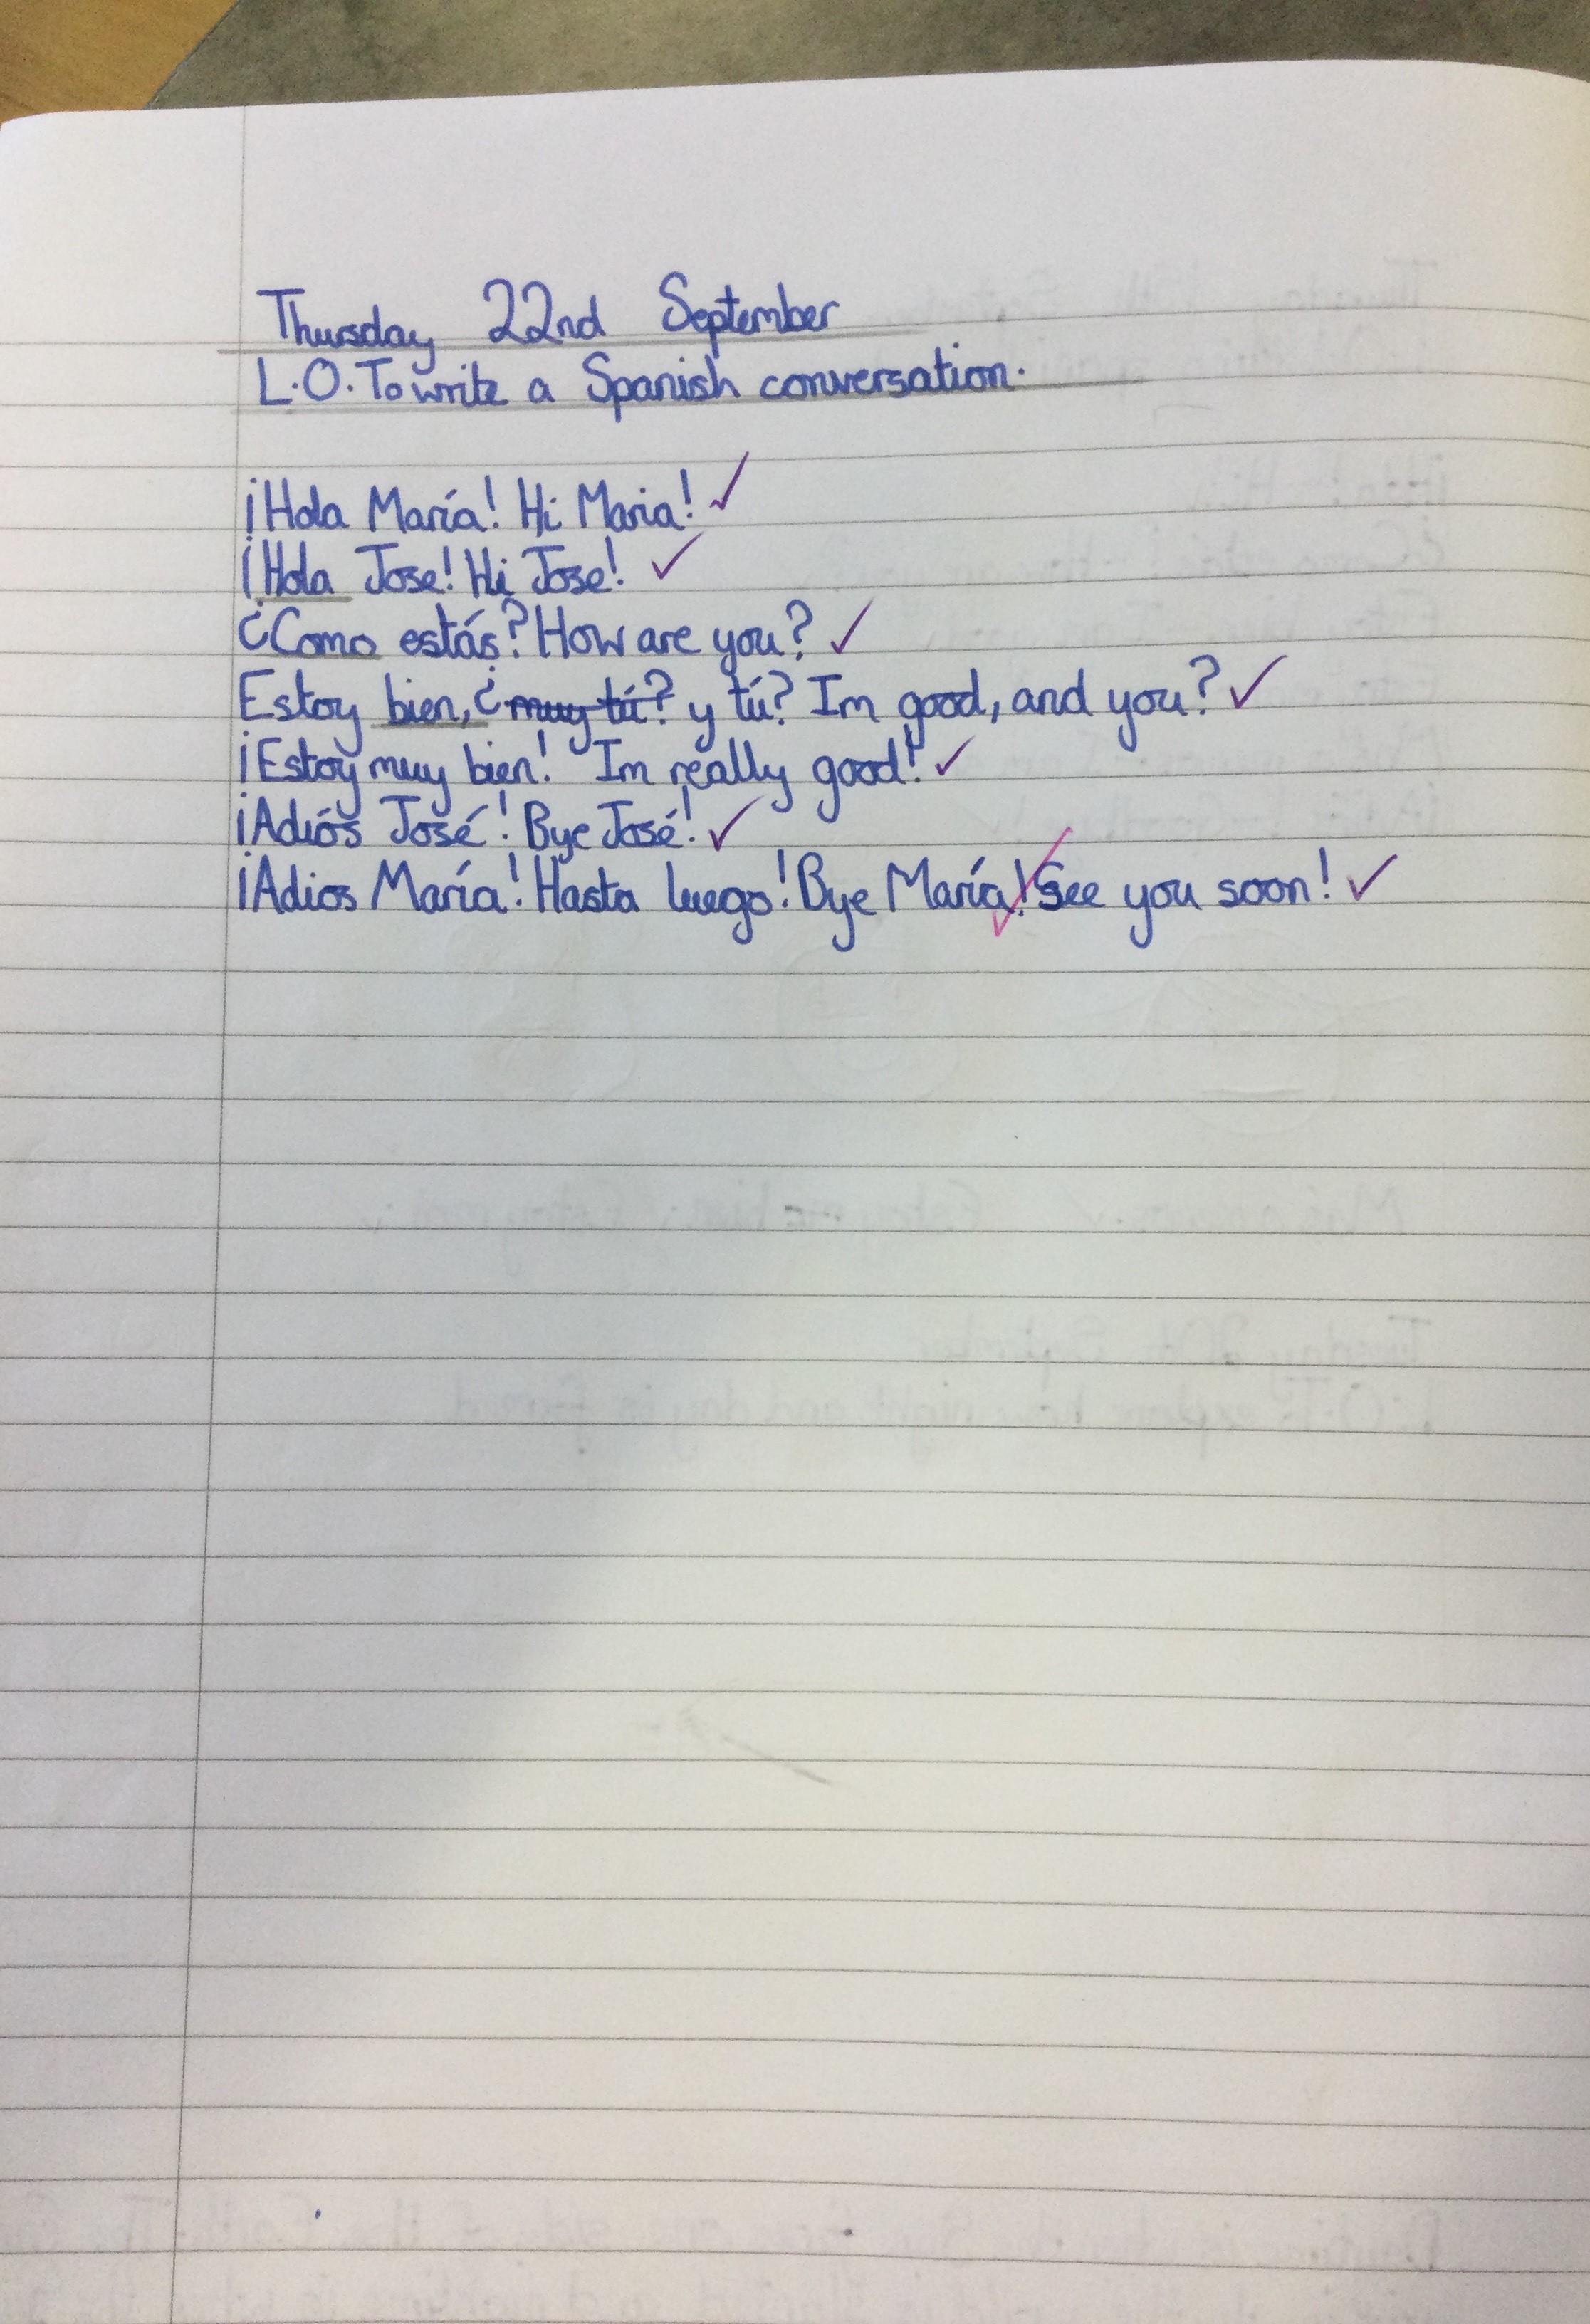 Thursday 22nd September
L.O. To write a Spanish conversation.
¡Hola María! Hi Maria!
¡Hola Jose! Hi Jose!
¿Como estás? How are you?
Estoy bien, ¿ muy tú? y tú? Im good, and you?
¡Estoy muy bien! Im really good!
¡Adiós José! Bye José!
¡Adios María! Hasta luego! Bye María! See you soon!